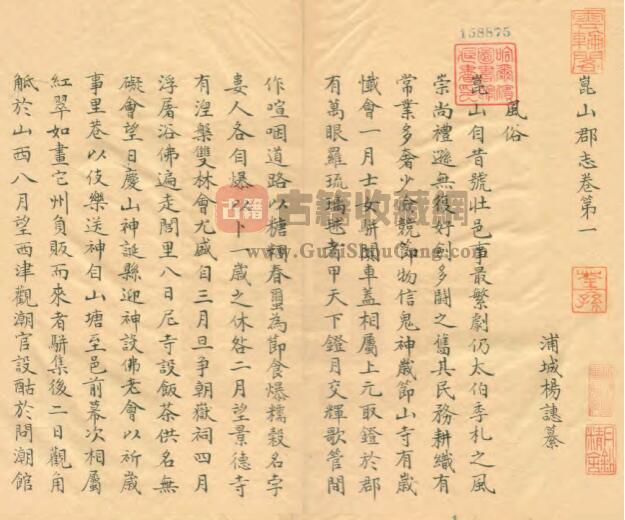 158875
雲輪閣
崑山郡志卷第一
荃孫
浦城楊譓纂
風俗
崑山自昔號壯邑事最繁劇仍太伯季札之風
崇尚禮遜無復好劍多鬬之舊其民務耕織有
常業多奢少儉競節物信鬼神歲節山寺有歲
懺會一月士女駢闐車蓋相屬上元取鐙於郡
有萬眼羅琉璃毬者甲天下鐙月交輝歌管間
作喧咽道路以糖糰春蠒為節食爆糯穀名孛
婁人各自爆以卜一歲之休咎二月望景德寺
有涅槃雙林會尤盛自三月旦爭朝嶽祠四月
浮屠浴佛遍走閭里八日尼寺設飯茶供名無
礙會望日慶山神誕縣迎神設佛老會以祈歲
事里巷以伎樂送神自山塘至邑前幕次相屬
紅翠如畫它州負販而來者駢集後二日觀角
觝於山西八月望西津觀潮官設酤於問潮館
古籍
古籍收藏網
www.GuJiShouCang.com